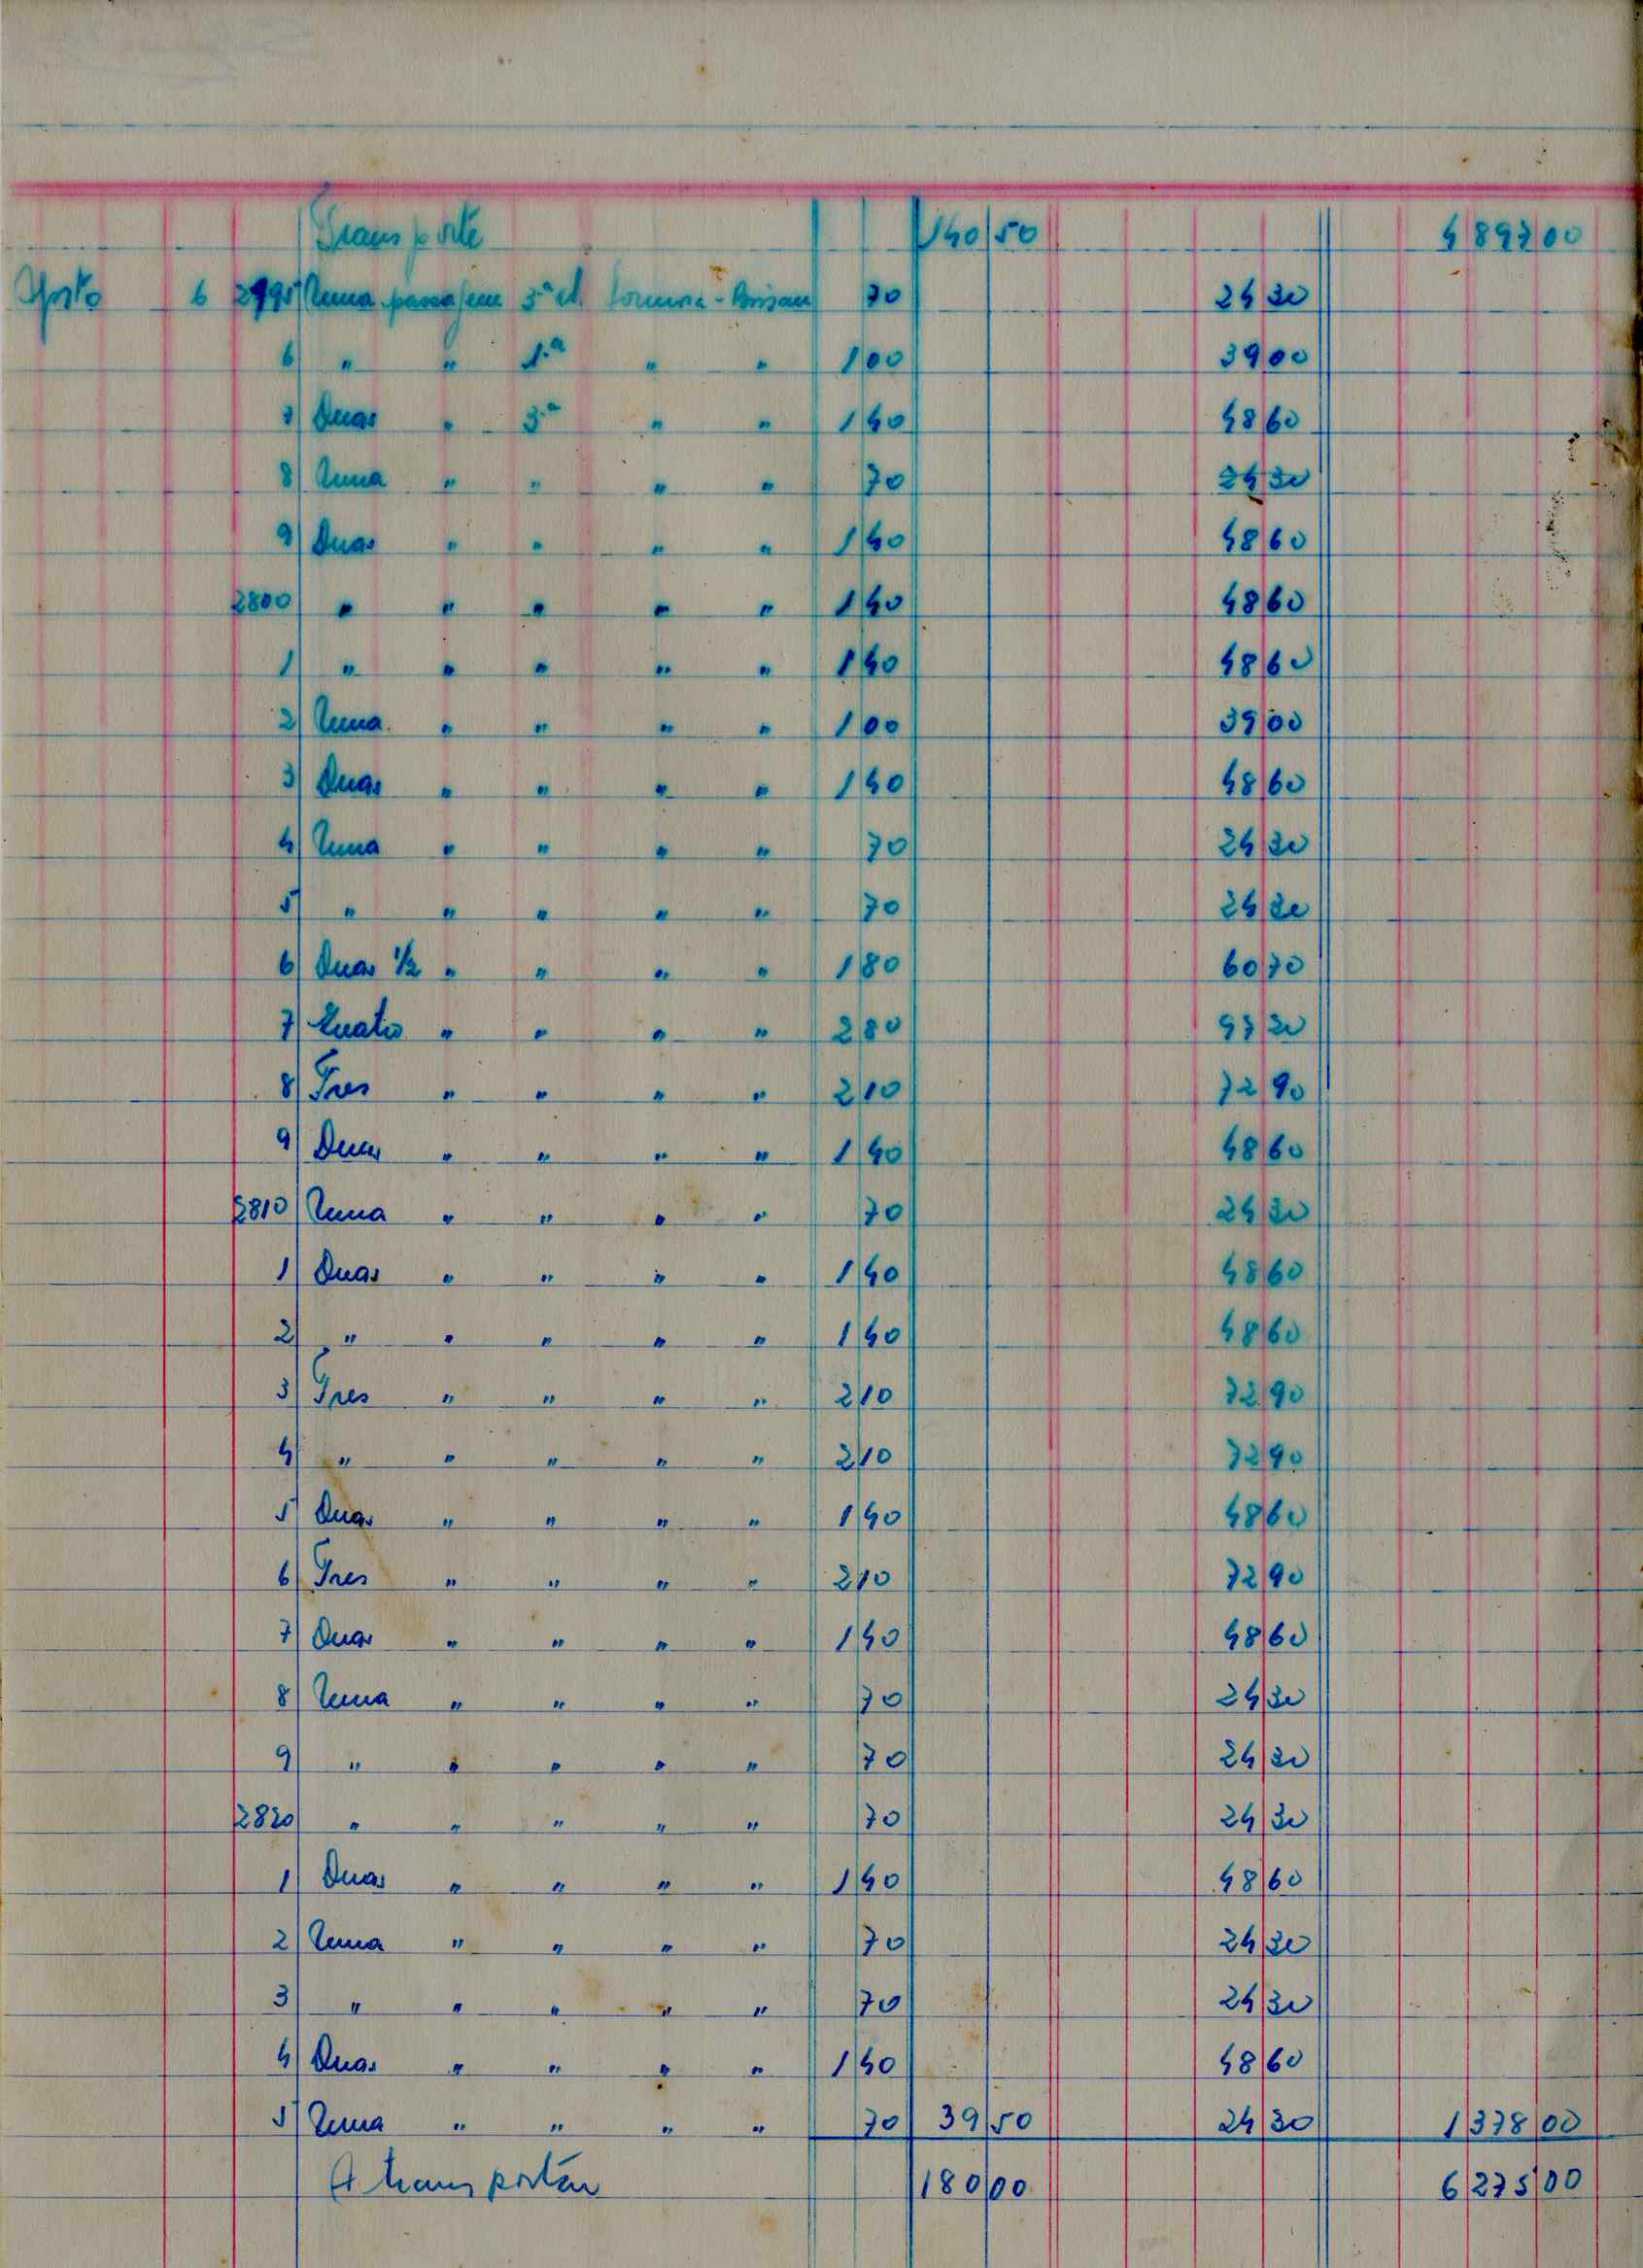 Transporte 140 50 4897 00
Agosto 6 2795 Uma passagem 3.ª cl. Formosa - Bissau 70 24 30
6 " " 1.ª " " 1 00 39 00
7 Duas " 3.ª " " 1 40 48 60
8 Uma " " " " 70 24 30
9 Duas " " " " 1 40 48 60
2800 " " " " " 1 40 48 60
1 " " " " " 1 40 48 60
2 Uma " " " " 1 00 39 00
3 Duas " " " " 1 40 48 60
4 Uma " " " " 70 24 30
5 " " " " " 70 24 30
6 Duas 1/2 " " " " 1 80 60 70
7 Quatro " " " " 2 80 97 20
8 Tres " " " " 2 10 72 90
9 Duas " " " " 1 40 48 60
2810 Uma " " " " 70 24 30
1 Duas " " " " 1 40 48 60
2 " " " " " 1 40 48 60
3 Tres " " " " 2 10 72 90
4 " " " " " 2 10 72 90
5 Duas " " " " 1 40 48 60
6 Tres " " " " 2 10 72 90
7 Duas " " " " 1 40 48 60
8 Uma " " " " 70 24 30
9 " " " " " 70 24 30
2820 " " " " " 70 24 30
1 Duas " " " " 1 40 48 60
2 Uma " " " " 70 24 30
3 " " " " " 70 24 30
4 Duas " " " " 1 40 48 60
5 Uma " " " " 70 39 50 24 30 1378 00
A transportar 180 00 6275 00